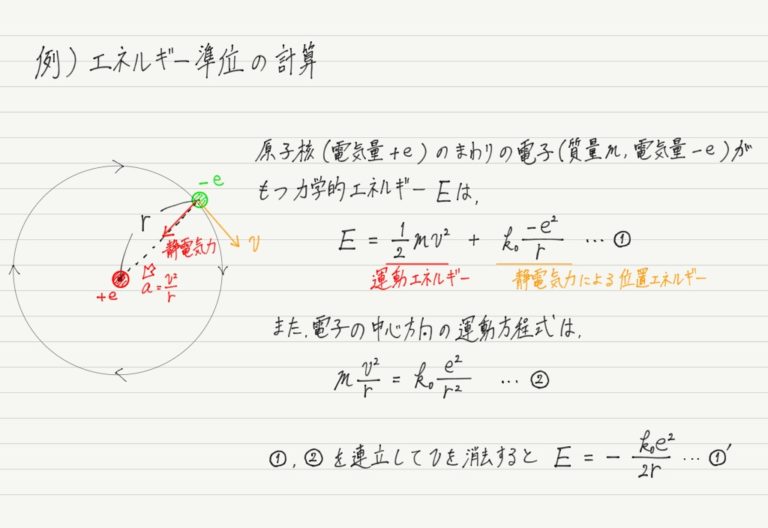 例) エネルギー準位の計算
原子核(電気量+e)のまわりの電子(質量m,電気量-e)が
もつ力学的エネルギーEは,
E = 1/2 mv² + k₀ -e²/r … ①
運動エネルギー 静電気力による位置エネルギー
また,電子の中心方向の運動方程式は,
m v²/r = k₀ e²/r² … ②
①,②を連立してvを消去すると E = - k₀e²/2r … ①'
-e
r
静電気力
v
+e
a = v²/r